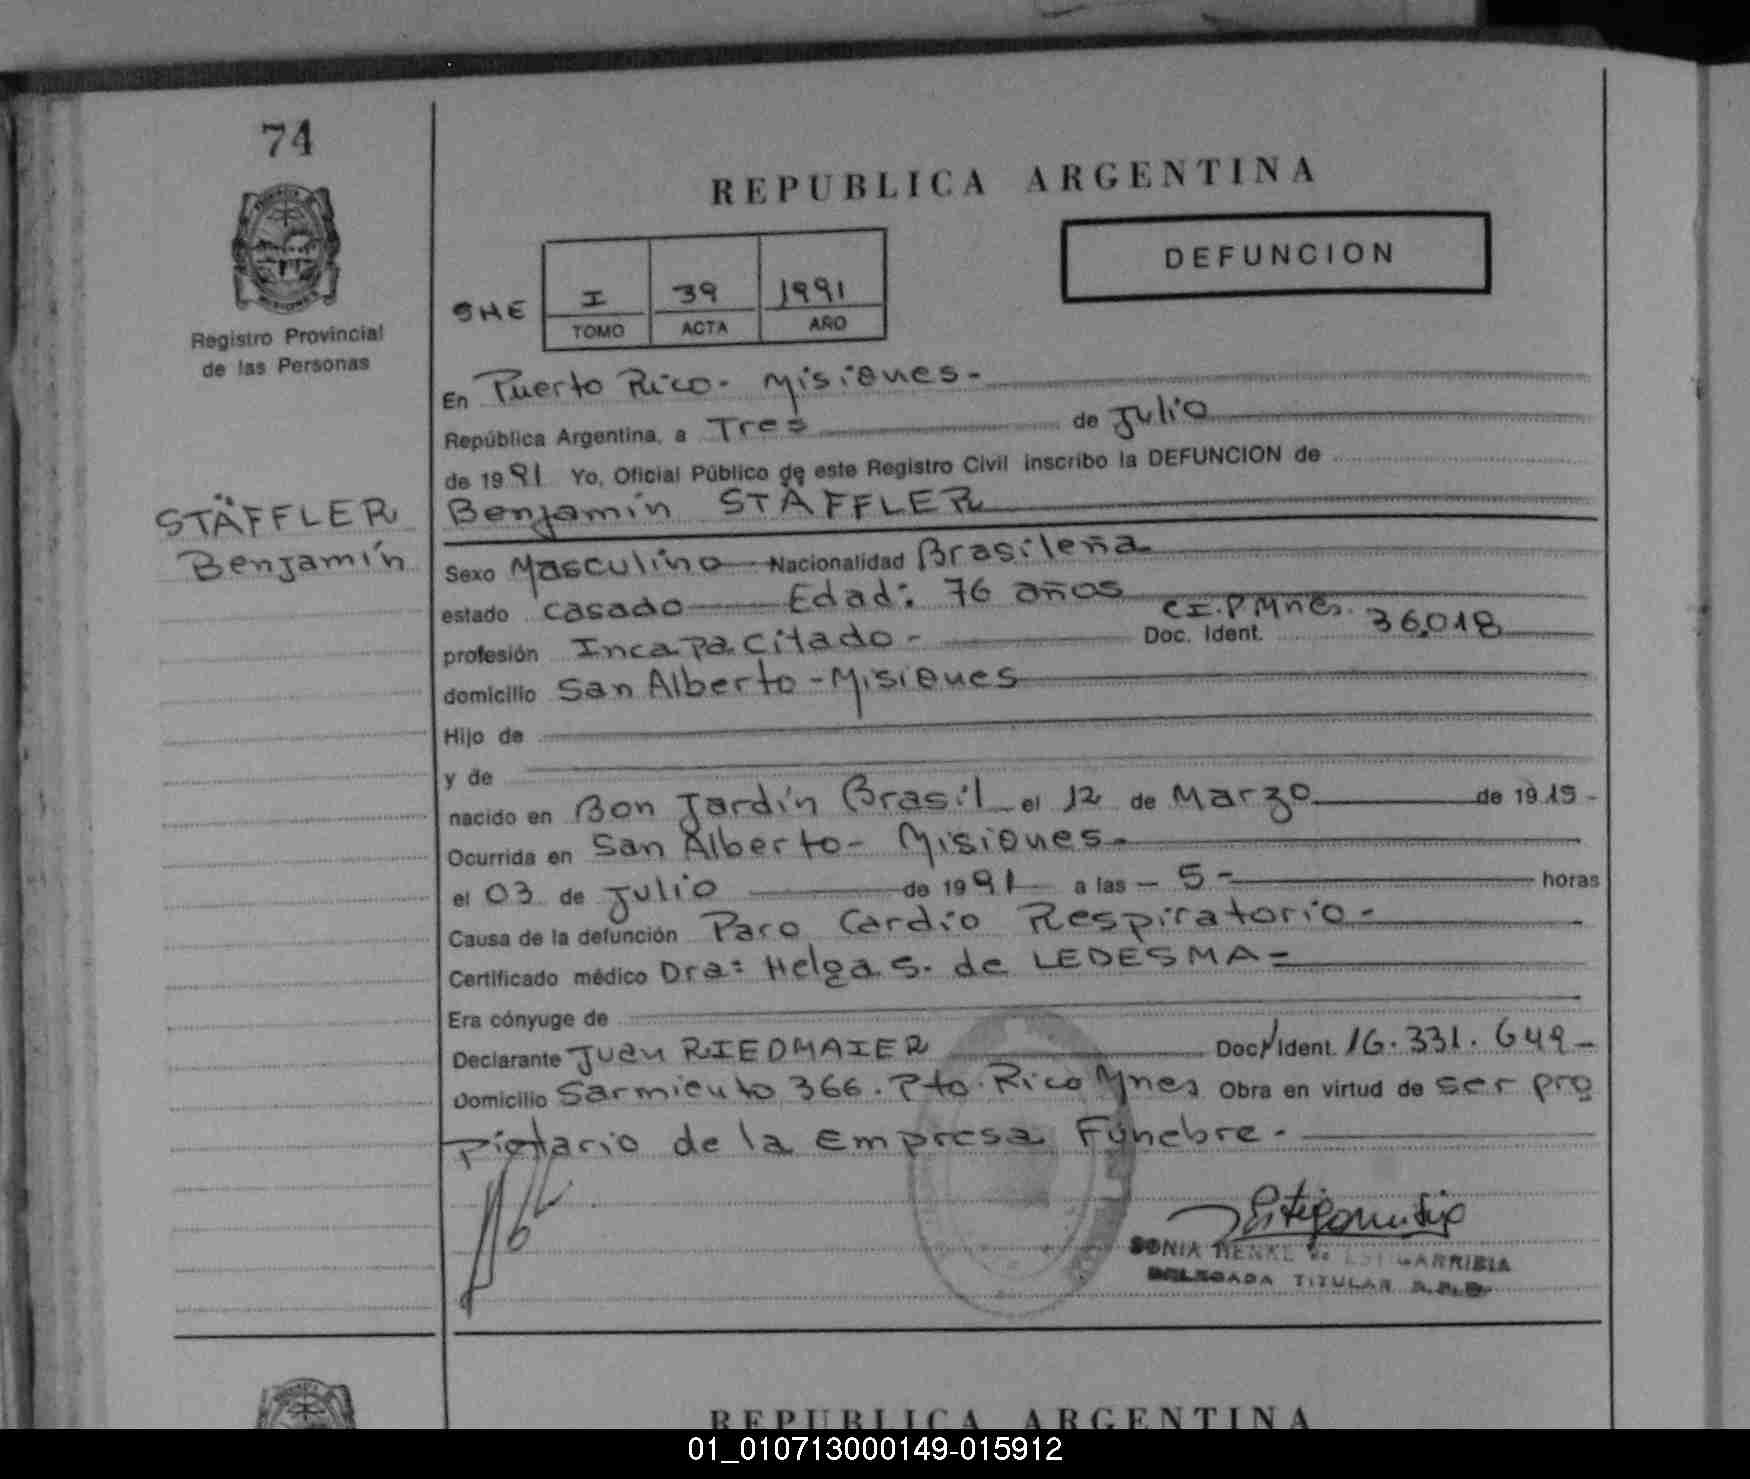 74
REPUBLICA ARGENTINA
DEFUNCION
SHE I 39 1991
TOMO ACTA AÑO
Registro Provincial
de las Personas
STÄFFLER
Benjamín
En Puerto Rico - Misiones -
República Argentina, a Tres de Julio
de 1991 Yo, Oficial Público de este Registro Civil inscribo la DEFUNCION de
Benjamín STÄFFLER
Sexo Masculino Nacionalidad Brasileña
estado casado Edad: 76 años
profesión Incapacitado - Doc. Ident. C.I.P. Mnes. 36.018
domicilio San Alberto - Misiones
Hijo de
y de
nacido en Bon Jardín Brasil el 12 de Marzo de 1915 -
Ocurrida en San Alberto - Misiones -
el 03 de Julio de 1991 a las - 5 - horas
Causa de la defunción Paro Cardio Respiratorio -
Certificado médico Dra: Helga S. de LEDESMA =
Era cónyuge de
Declarante Juan RIEDMAIER Doc. Ident. 16.331.649 -
Domicilio Sarmiento 366. Pto. Rico Mnes Obra en virtud de ser pro
pietario de la Empresa Fúnebre -
SONIA HENKE de ESTIGARRIBIA
DELEGADA TITULAR R.P.P.
REPUBLICA ARGENTINA
01_010713000149-015912